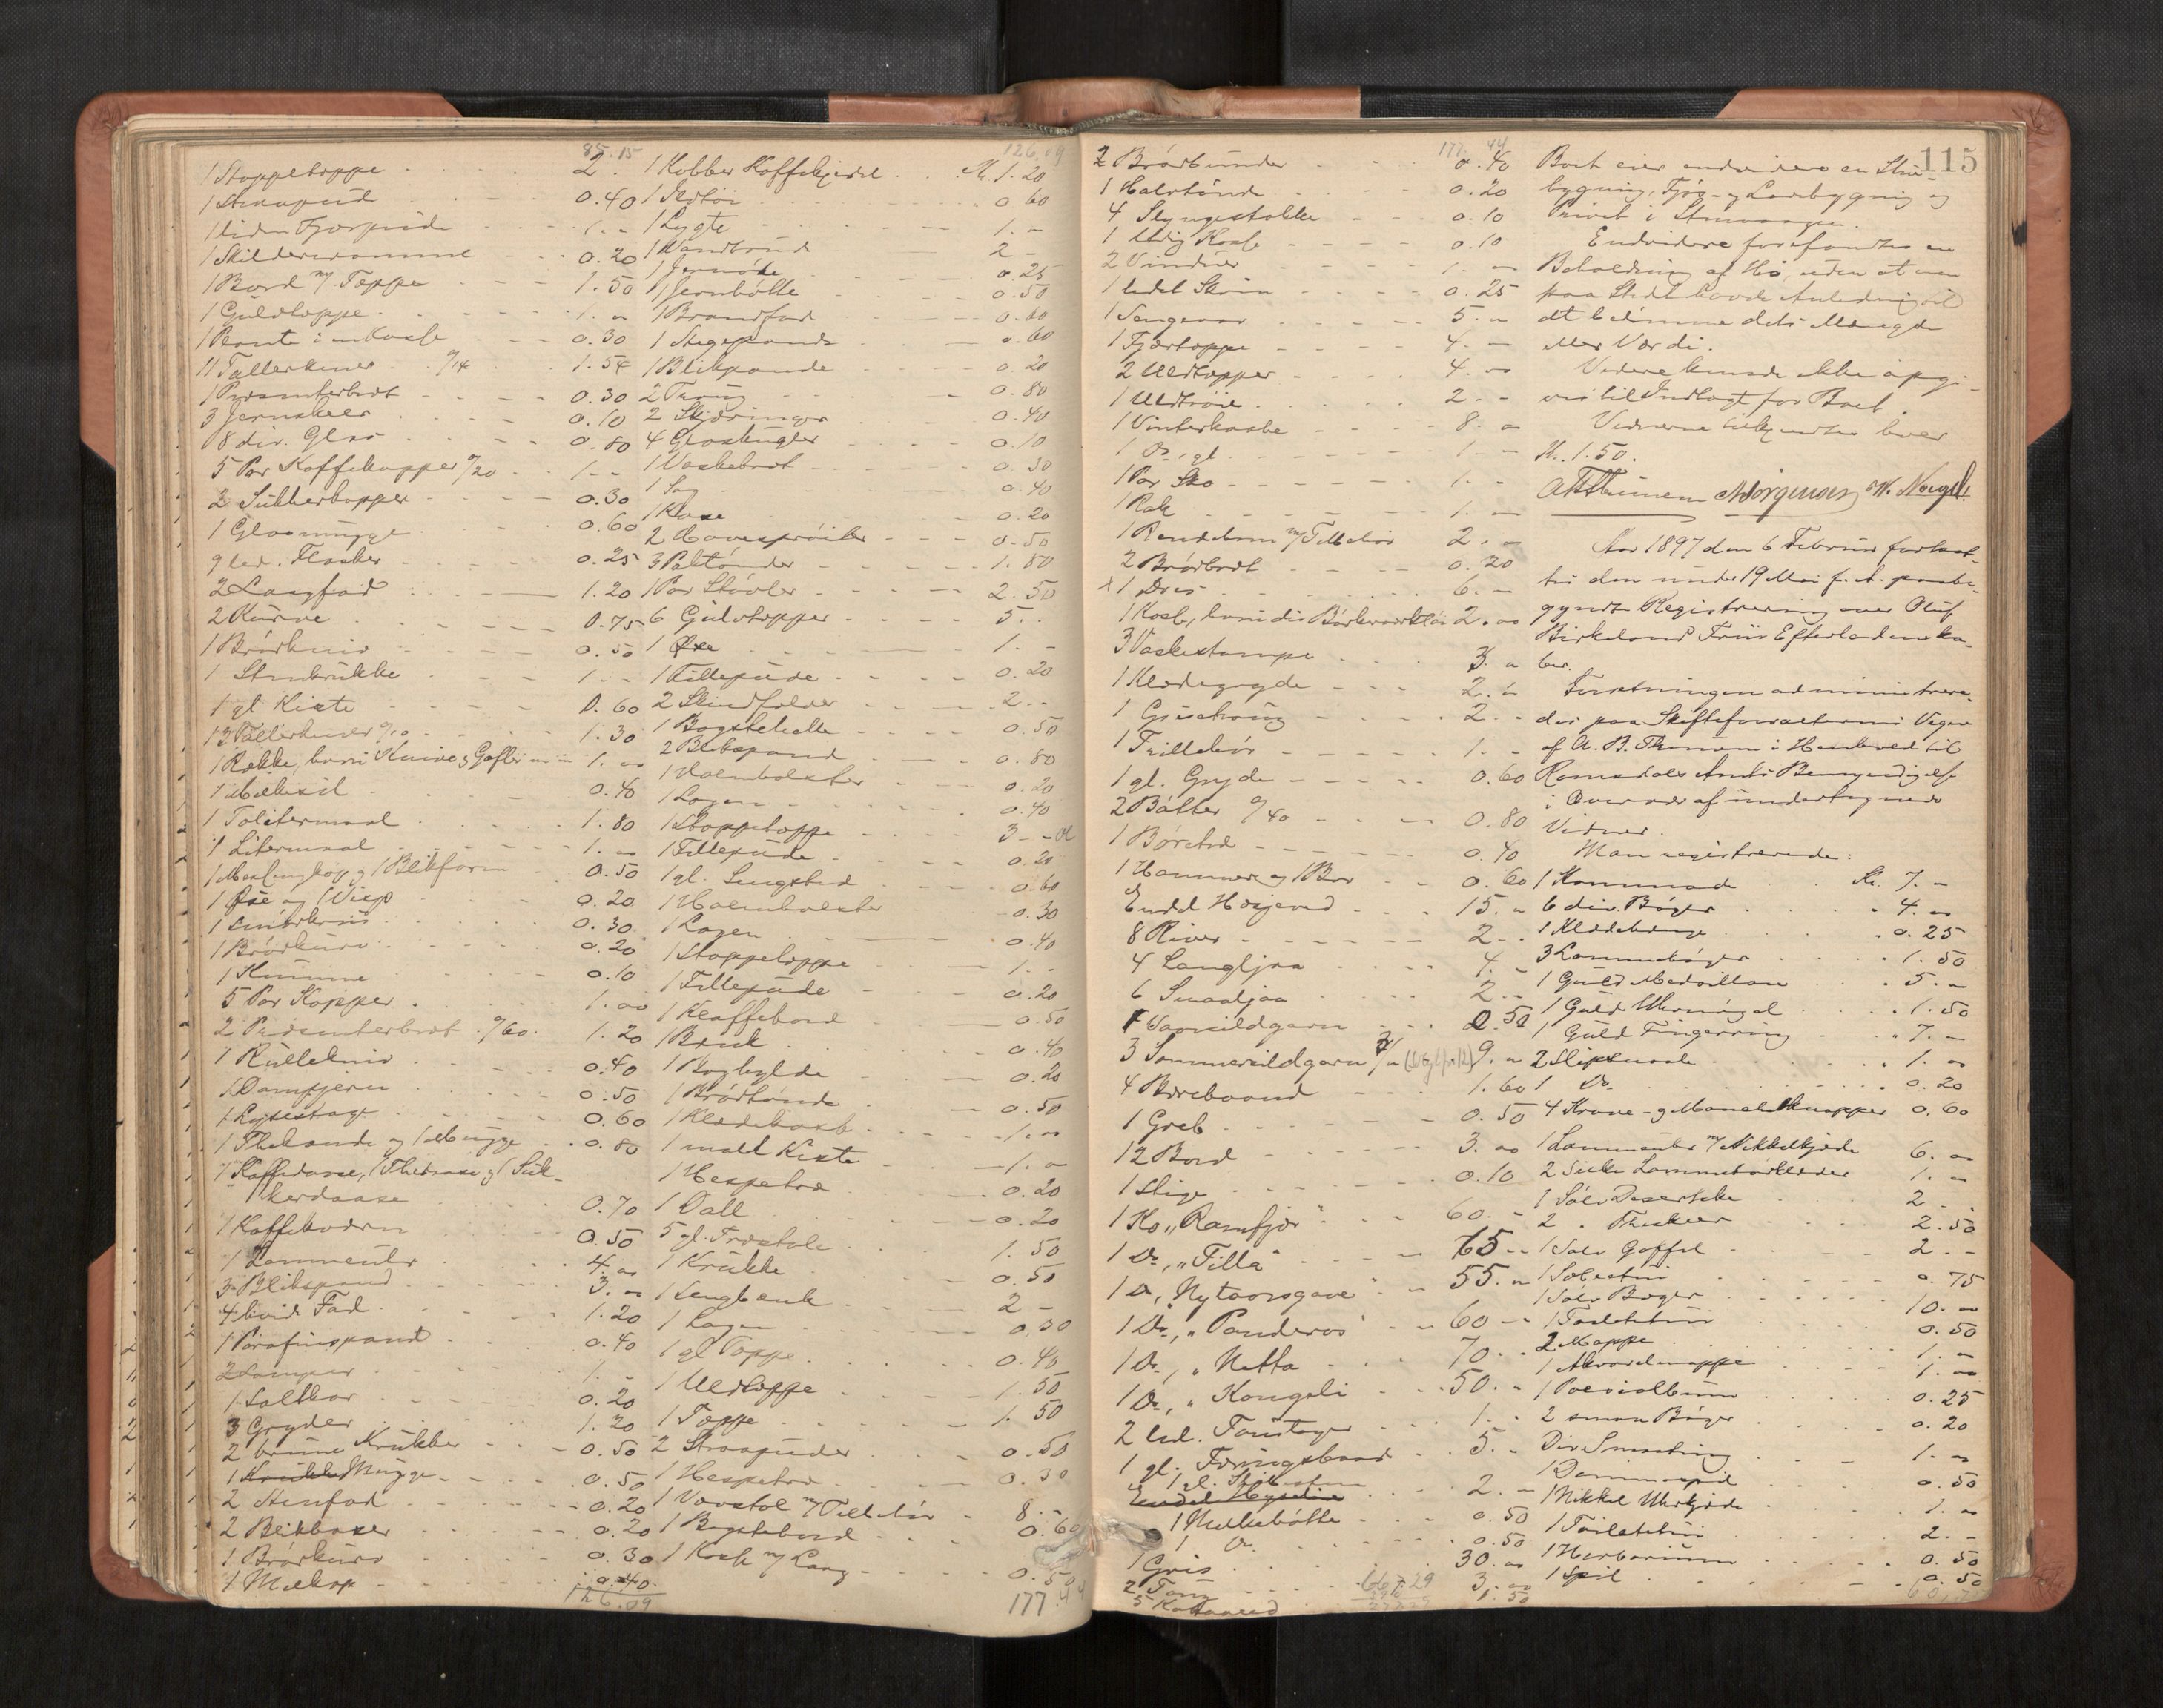 85.15
1 Stoppeteppe 2.
0.40
1 liden Fjærpude 1. -
1 Skilderramme 0.20
1 Bord m/ Teppe 1.50
1 Gulvteppe 1. -
0.30
11 Tallerkener a/14 1.54
1 Presenterbret 0.30
3 Jernskeer 0.10
8 div. Glas 0.80
5 Par Kaffekopper a/20 1. -
2 Sukkerkopper 0.30
1 Glasmugge 0.60
9 led. Flasker 0.25
2 Langfad 1.20
2 Kurve 0.75
1 Brødkniv 0.50
1 Stenkrukke 1. -
1 gl Kiste 0.60
13 Tallerkener a/10 1.30
1 Række, hvori Knive & Gafler 1. -
1 Melkesil 0.40
1 Tolitermaal 1.80
1 Litermaal 1. -
1 Messingkop og 1 Blikform 0.50
1 Øse og 1 Visp 0.20
1 Smørkrus 0.30
1 Brødkurv 0.20
1 Kumme 0.10
5 Par Kopper 1.00
2 Presenterbret a/60 1.20
1 Rullekniv 0.40
1 Dampjern 0.50
1 Lysestage 0.60
1 Thekande og 1 Mugge 0.80
1 Kaffedaase, 1 Thedaase & 1 Suk-
kerdaase 0.70
1 Kaffekværn 0.50
1 Lommeuhr 4. -
3 Blikspand 3. -
4 hvide Fad 1.20
1 Parafinspand 0.40
2 Lamper 1. -
1 Saltkar 0.20
3 Gryder 1.20
2 brune Krukker 0.50
1 Krukke Mugge 0.50
2 Stenfad 0.20
2 Blikbokser 0.20
1 Brødkurv 0.30
1 Melkop 0.40
126.09
126.09
1 Kobber Kaffekjedel Kr. 1.20
1 Ildtøi 0.60
1 Lygte 1. -
1 Vandtønde 2 -
0.25
1 Jernbøtte 0.50
1 Brandfad 0.60
1 Stegepande 0.60
1 Blikpande 0.20
2 Traug 0.80
2 Skjæringer 0.40
4 Glaskugler 0.10
1 Vaskebret 0.30
1 Sag 0.40
1 Kasse 0.20
2 0.50
3 1.80
1 Par Støvler 2.50
6 Gulvtepper 5. -
1 Øxe 1. -
1 Fillepude 0.20
2 Skindfelder 2. -
1 Bagstehelle 0.50
2 Blikspand 0.80
1 Halmbolster 0.20
1 Lagen 0.40
1 Stoppeteppe 3. -
1 Fillepude 0.20
1 gl. Sengsted 0.60
1 Halmbolster 0.30
1 Lagen 0.40
1 Stoppeteppe 1. -
1 Fillepude 0.20
1 Klaffebord 0.50
1 Bænk 0.40
1 Boghylde 0.20
1 Brødtønde 0.50
1 Klædekasse 1. -
1 malt Kiste 1. -
1 Hespetræ 0.20
1 Dall 0.20
5 gl. Træstole 1.50
1 Krukke 0.50
1 Sengbænk 2 -
1 Lagen 0.30
1 gl Teppe 0.40
1 Uldteppe 1.50
1 Teppe 1.50
2 Straapuder 0.50
1 Hespetræ 0.30
1 Vævstol m/ Tilbehør 8. -
1 Bagstebord 0.60
1 Kasse m/ Laag 0.50
177.44
177.44
2 Brødtønder 0.40
1 Halvtønde 0.20
4 Slyngestokke 0.10
1 ledig Kasse 0.10
2 Vinduer 1. -
1 ledet Skrin 0.25
1 Sengevær 5. -
1 Fjærteppe 4. -
2 Uldtepper 4. -
1 Uldtrøie 2. -
1 Vinterkaabe 8. -
1 Do, gl 1. -
1 Par Sko 1. -
1 Rok 1. -
1 Rendebom m/ Tilbehør 2. -
2 Brødbret 0.20
x 1 Dres 6. -
1 Kasse, hvori div 2. -
3 Vaskestampe 3. -
1 Klædesgryde 2. -
1 2. -
1 Trillebør 1. -
1 gl. Gryde 0.60
2 Bøtter a/40 0.80
1 Børetræ 0.40
1 Hammer og 1 Bor 0.60
Endel Hæsjeved 15. -
8 River 2. -
4 Langljaa 4. -
6 Smaaljaa 2. -
1 Vaarsildgarn 2.50
3 Sommersildgarn 9. -
4 Bærebaand 1.60
1 Greb 0.50
12 Bord 3. -
1 Stige 0.10
1 Ko „Ramfjør" 60. -
1 Do, „Filla" 65 -
1 Do, „Nytaarsgave" 55. -
1 Do, „Panderos" 60 -
1 Do, „Netta 70. -
1 Do, „Kongeli 50. -
2 led. 1. -
1 gl. Færingsbaad 5. -
2. -
1 Melkebøtte 0.50
1 Do. 0.50
1 Gris 30. -
2 3. -
5 1.50
667.29
115
Boet eier endvidere en Stue-
bygning, Fjøs- & Ladebygning og
Privet i
Endvidere forefandtes en
Beholdning af Hø, uden at man
paa Stedet havde Anledning til
at bedømme dets Mængde
eller Værdi.
Videre kunde ikke opgi-
ves til Indtægt for Boet.
Vidnerne tilkjendtes hver
Kr. 1.50.
Aar 1897 den 6 Februar fortsat-
tes den under 19 Mai f. A. paabe-
gyndte Registrering over Oluf
Birkeland Friis Efterladenska-
ber.
Forretningen administrere-
des paa Skifteforvalterens Vegne
af A. B. Thunem i Henhold til
Romsdals Amts Bemyndigelse
i Overvær af undertegnede
Vidner.
Man registrerede:
1 Kommode Kr. 7. -
6 div. Bøger " 4. -
1 " 0.25
3 Lommebøger " 1.50
1 Guld Medaillon " 5. -
1 Guld Uhrnøgel " 1.50
1 Guld Fingerring " 7. -
2 Slipsnaale " 1. -
1 Do. 0.20
4 Krave- og Manchetknapper 0.60
1 Lommeuhr m/ Nikkelkjæde 6. -
2 Silke Lommetørklæder 1. -
1 Sølv Desertske 2 -
2 " Theskeer 2.50
1 Sølv Gaffel 2. -
0.75
1 Sølv Bæger 10. -
1 Toiletetui 0.50
2 Mappe 1. -
1 1. -
1 Poesialbum 0.25
2 smaa Bøger 0.20
Div Smaating 1. -
1 Dominospil 0.50
1 Nikkel Uhrkjæde 1. -
1 Toiletetui 2. -
1 Herbarium 0.50
1 Spil 0.50